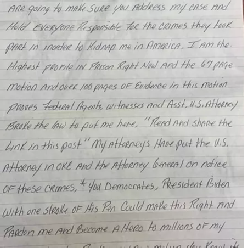 Are going to make sure you Address my case and
Hold Everyone Responsible for the crimes they took
part in inorder to Kidnap me in America. I am the
Highest profile Person Right Now and the 67 page
Motion and over 100 pages of Evidence in this motion
proves Federal Agents, witnesses and Asst. U.S. Attorney
Broke the law to put me here, "Read and share the
Link in this post" My Attorneys Have put the U.S.
Attorney in and the Attorney General on notice
of these crimes, & you Democrates, President Biden
with one stroke of His Pin Could make this Right And
Pardon me and Become A Hero to millions of my